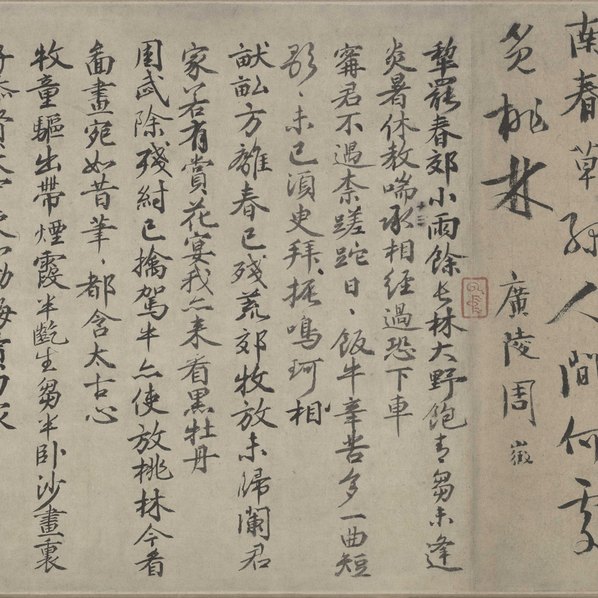 南春草絲人間何處
覓桃林
廣陵周
犂罷春郊小雨餘長林大野飽青芻未逢
炎暑休教喘丞相經過恐下車
甯君不遇柰蹉跎日、飯牛辛苦多一曲短
歌、未已須臾拜擢鳴珂相
畎畝方離春已残荒郊牧放未歸闌君
家若有賞花宴我亦来看黑牡丹
周武除殘紂已擒駕半亦使放桃林今看
啚畫宛如昔筆、都含太古心
牧童驅出帶煙霞半齕生芻半卧沙畫裏